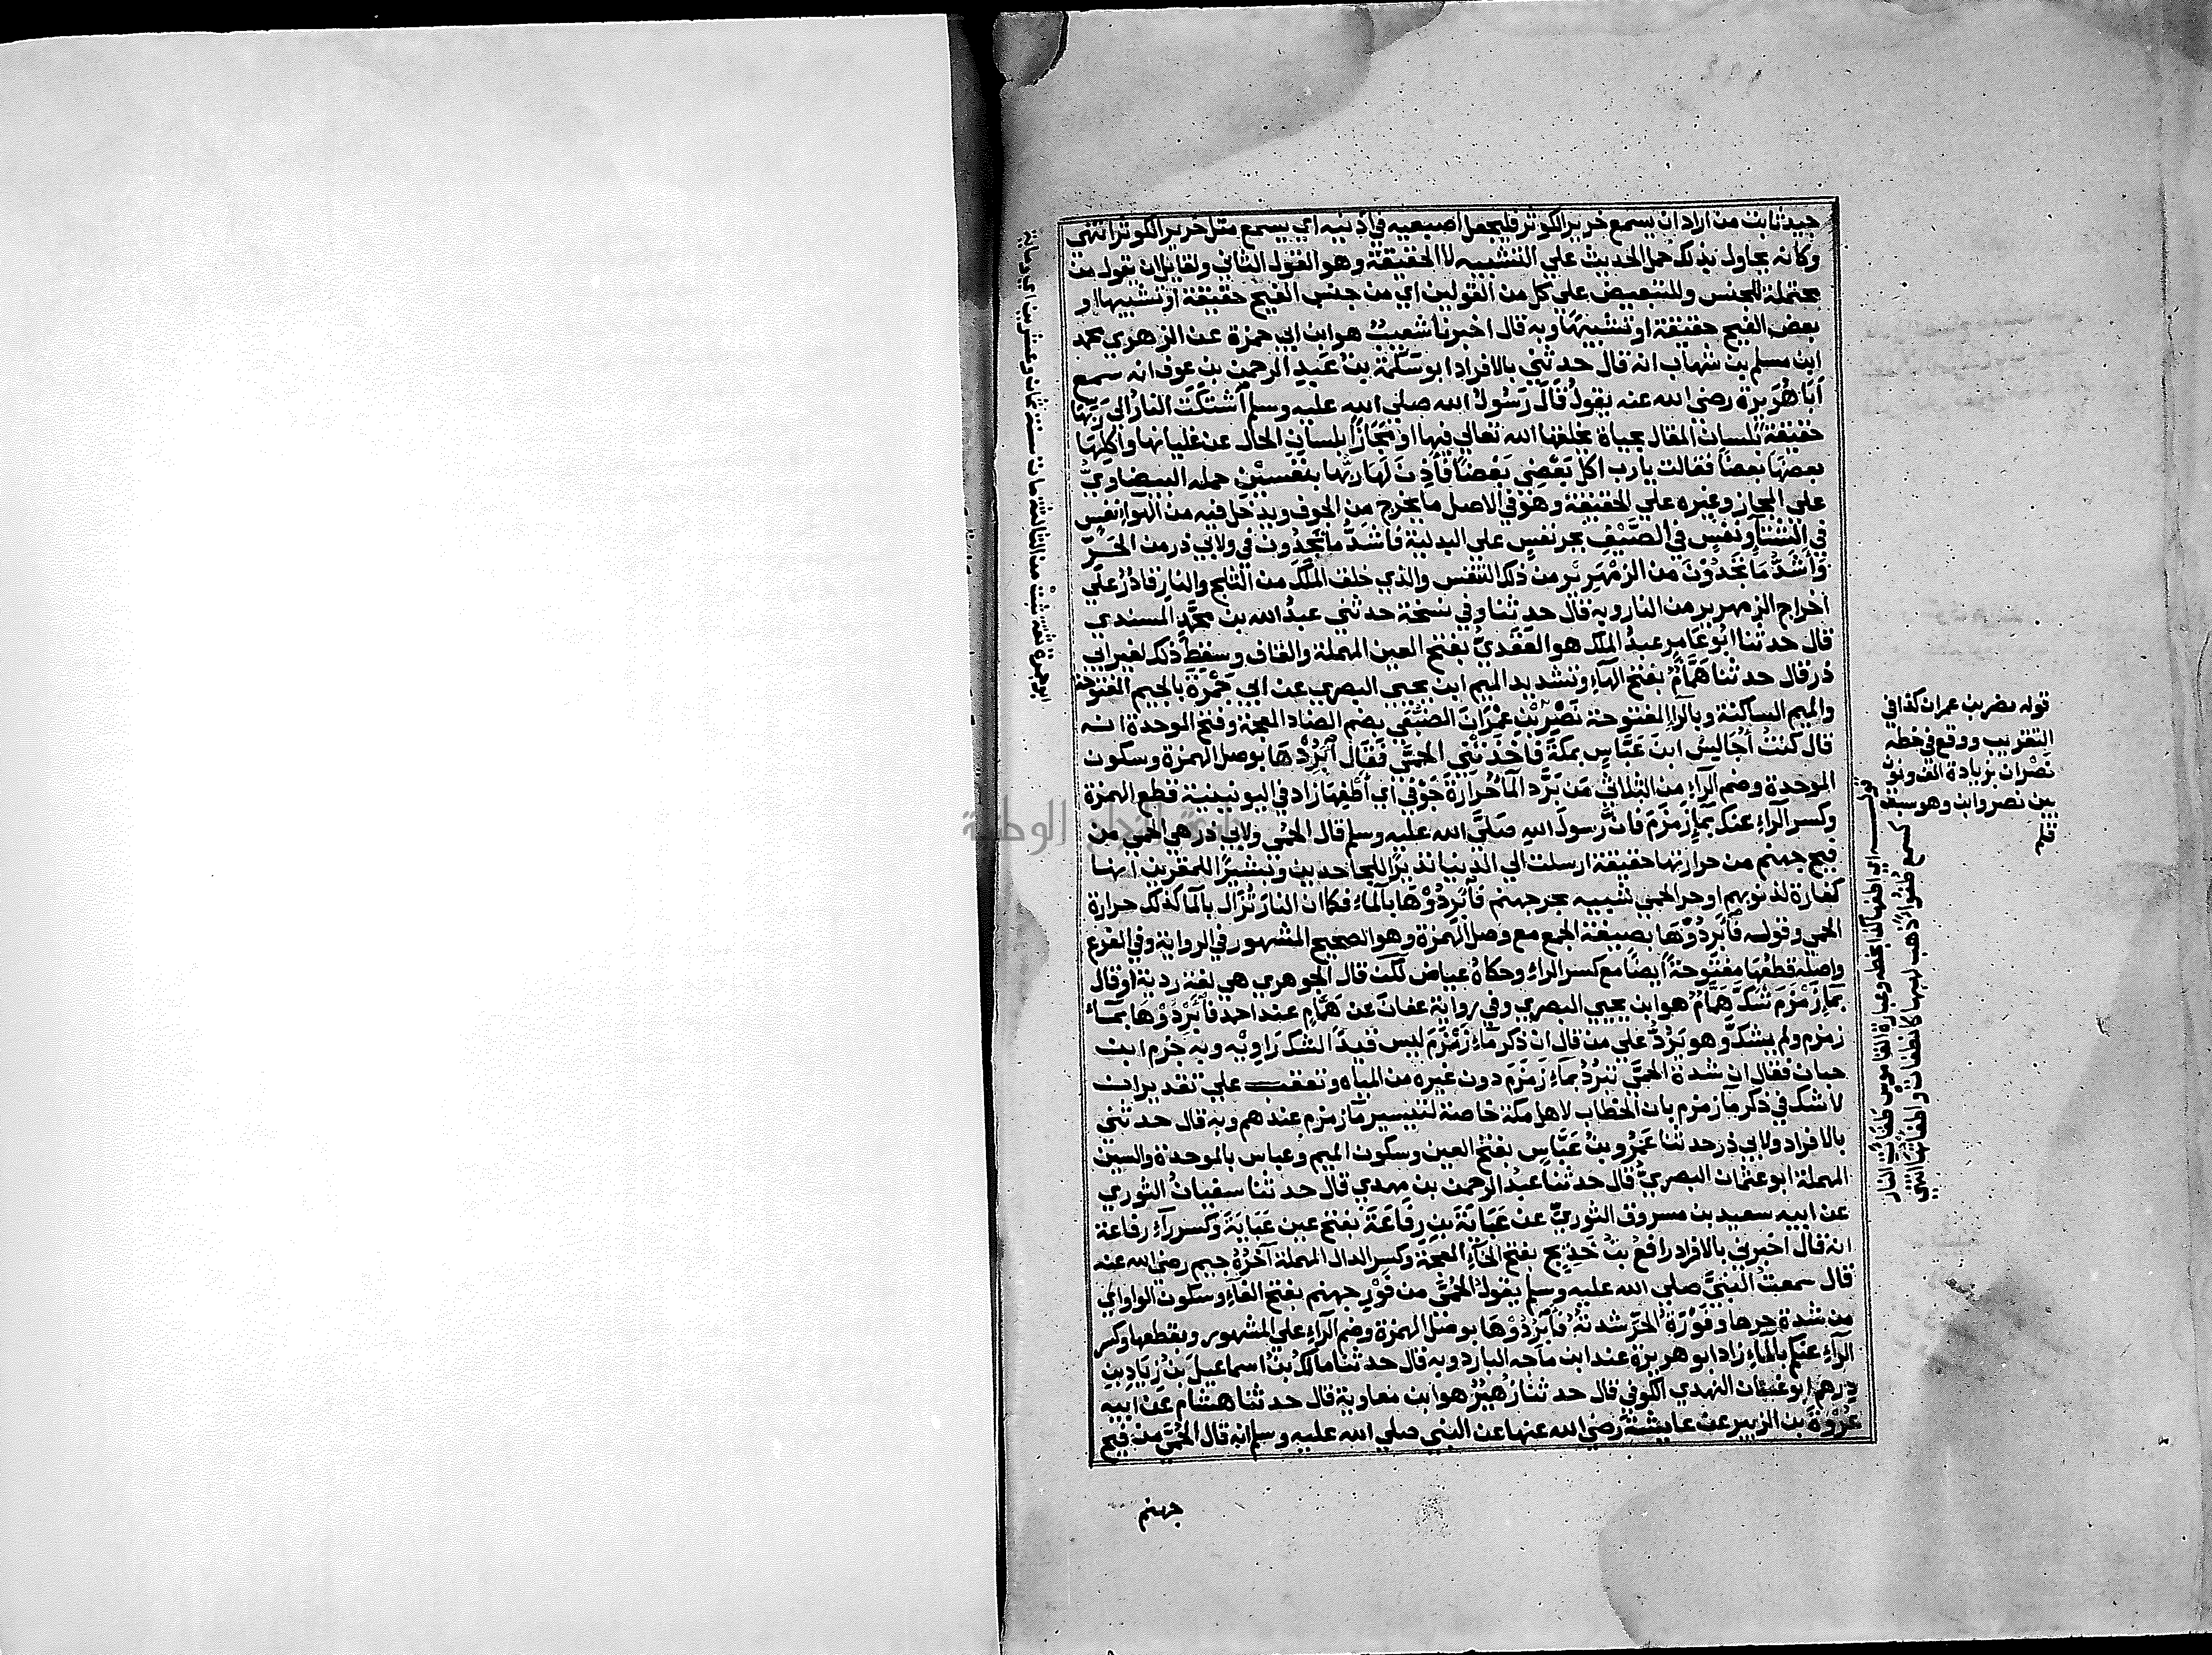 جيد ثابت من اراد ان يسمع خرير الكوثر فليجعل اصبعيه في اذنيه اي يسمع مثل خرير الكوثر انتهي
وكانه يحاول بذلك حمل الحديث علي التشبيه لا الحقيقة وهو القول الثاني ولقايل ان يقول من
محتملة للجنس وللتبعيض علي كل من القولين اي من جنس الفيح حقيقة او تشبيها او
بعض الفيح حقيقة او تشبيهًا وبه قال اخبرنا شعيبٌ هو ابن ابي حمزة عن الزهري محمد
ابن مسلم بن شهاب انه قال حدثني بالافراد ابو سَلَمَة بنُ عَبدِ الرحمن بن عوف انه سمع
اَبَا هُرَيرة رضي الله عنه يقولُ قَالَ رَسُولُ الله صلي الله عليه وسلم اشتكَتِ النارُ الي رَبِّهَا
حقيقةً بلسان المقال بحياة يخلقها الله تعالي فيها او مجَازًا بلسان الحال عن غليانها واكلِهَا
بعضهَا بعضًا فقالت يارب اكل بَعْضِي بَعْضًا فَأَذِنَ لَهَا ربُّها بنفسَيْنِ حمله البيضاويّ
علي المجاز وغيره علي الحقيقة وهو في الاصل ما يخرج من الجوف ويدخل فيه من الهواء نفس
في الشتاءِ ونفسٍ في الصَّيْفِ بجر نفسٍ علي البدلية فاشدُّ ما تجدُون في ولابي ذر من الحَرّ
وأشدُّ مَا تجدُوْنَ من الزمْهَرِيْر من ذلك التنفس والذي خلق الملكَ من الثلج والنار قادرٌ علي
اخراج الزمهرير من النار وبه قال حدثنا وفي نسخة حدثني عبدُ الله بن محمَّدٍ المسندي
قال حدثنا ابو عَامِر عبدُ الملك هو العَقَديُّ بفتح العين المهملة والقاف وسقط ذلك لغير ابي
ذر قال حدثنا هَمَّامٌ بفتح الهاءِ وتشديد الميم ابن يحيي البصري عن ابي جَمْرَة بالجيم المفتوحة
والميم الساكنة وبالراء المفتوحة نَصْرِ بْنِ عِمْرَانَ الضبَعِي بضم الضاد المعجمة وفتح الموحدة انه
قال كنتُ أُجَالِسُ ابنَ عَبَّاسٍ بمكةَ فاخَذَتْني الحمَّى فَقَال أبْرِدْهَا بوصل الهمزة وسكون
الموحدة وضم الراء من الثلاثي مَن بَرَّد المآءُ حَرارَةَ جَوْفي اي أَطْفِهَا زاد في اليونينية قطع الهمزة
وكسر الراءِ عنك بماءِ زمزَم فانَّ رسولَ اللهِ صَلَّي الله عليه وسلم قال الحمّى ولابي ذر هي الحمى من
فيح جهنم من حرارتها حقيقة ارسلت الي الدنيا نذيرًا للجاحدين وتبشيرًا للمقربين انها
كفارة لذنوبهم او حر الحمي شبيه بحر جهنم فأَبْرِدُوْهَا بالماء فكما ان النار تُزَال بالماء كذلك حرارة
الحمي وقوله فأبرِدُوْهَا بصيغة الجمع مع وصل الهمزة وهو الصحيح المشهور في الرواية وفي الفرع
واصله قطعُهَا مفتوحةً ايضًا مع كسر الراء وحكاه عياض لكن قال الجوهري هي لغة ردية او قال
بماءِ زَمْزَمَ شَكَّ هَمَّامٌ هو ابن يحيي البصري وفي رواية عفان عن هَمَّامٍ عند احمد فأبْرِدُوْها بمآء
زمزم ولم يشكَّ وهو يَرُدُّ علي من قال ان ذكر ماءَ زَمْزَمَ ليس قيدًا لشك رَاوِيْهِ وبه جزم ابن
حبان فقال ان شدة الحمّى تبرُدُ بماءِ زَمزَمَ دون غيره من المياه وتعقب علي تقدير ان
لا شك في ذكر مآ زمزم بان الخطاب لاهل مكة خاصة لتيسير مآ زمزم عندهم وبه قال حدثني
بالافراد ولابي ذر حدثنا عَمْرُو بنُ عَبَّاسٍ بفتح العين وسكون الميم وعباس بالموحدة والسين
المهملة ابو عثمان البصريّ قال حدثنا عبدُ الرحمن بن مهدي قال حدثنا سفيانُ الثوري
عن ابيه سعيد بن مسروق الثوريّ عن عَبَايَةَ بنِ رِفَاعَةَ بفتح عين عَبَايَةَ وكسر رآءِ رفاعة
انه قال اخبرني بالافراد رافعُ بنُ خَدِيْج بفتح الخآءِ المعجمة وكسر الدال المهملة آخرُهُ جيم رضي الله عنه
قال سمعتُ النبيَّ صلي الله عليه وسلم يقولُ الحُمَّى من فَوْرِ جهنم بفتح الفآءِ وسكون الواو اي
من شدة حرها وفَوْرَةُ الحَرّ شدتهُ فأبْرُدُوْهَا بوصل الهمزة وضم الراءِ علي المشهور وبقطعها وكسر
الراءِ عنكم بالماءِ زاد ابو هريرة عند ابن ماجه البارد وبه قال حدثنا مالكُ بنُ اسماعيلَ بن زِيَادِ بنِ
دِرهم ابو غسان النهدي الكوفي قال حدثنا زُهَيرٌ هو ابن معاوية قال حدثنا هشام عن ابيه
عُرْوَةَ بن الزبير عن عايشةَ رضي الله عنها عن النبي صلي الله عليه وسلم انه قال الحُمَّى من فيح
جهنم
قوله نصر بن عمران كذا في
التقريب ووقع في خطه
نصْران بزيادة الف ونون
بين نصر وابن وهو سبق
قلم
قوله اي اطفها كذا بخطه وعبارة القاموس طَفِئَتِ النار
كسمع طُفُوْءًا ذهب لهبها كانطفأت وأطفأتها انتهي
ابو جمرة ثقة ثبت من الثالثة مات سنة ثمان وعشرين اي وماية
دار الوطنية